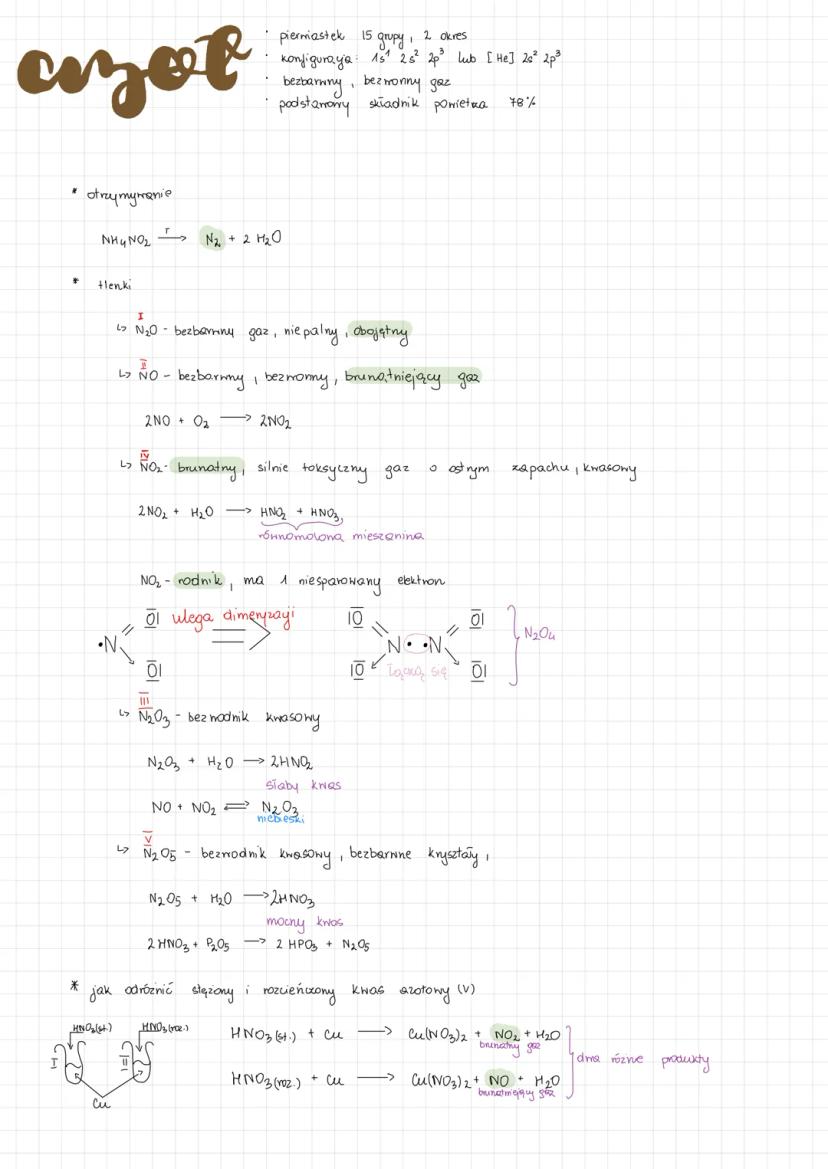 azot
· pierwiastek 15 grupy, 2 okres
· konfiguracja: 1s¹ 2s² 2p³ lub [He] 2s² 2p³
· bezbarwny, bezwonny gaz
· podstawowy składnik powietrza 78%
* otrzymywanie
NH₄NO₂ —T→ N₂ + 2 H₂O
* tlenki
I
↳ N₂O - bezbarwny gaz, niepalny, obojętny
II
↳ NO - bezbarwny, bezwonny, brunatniejący gaz
2NO + O₂ → 2NO₂
IV
↳ NO₂ - brunatny, silnie toksyczny gaz o ostrym zapachu, kwasowy
2NO₂ + H₂O → HNO₂ + HNO₃
równomolowa mieszanina
NO₂ - rodnik, ma 1 niesparowany elektron
ulega dimeryzacji
N₂O₄
łączą się
III
↳ N₂O₃ - bezwodnik kwasowy
N₂O₃ + H₂O → 2HNO₂
słaby kwas
NO + NO₂ ⇌ N₂O₃
niebieski
V
↳ N₂O₅ - bezwodnik kwasowy, bezbarwne kryształy,
N₂O₅ + H₂O → 2HNO₃
mocny kwas
2HNO₃ + P₂O₅ → 2 HPO₃ + N₂O₅
* jak odróżnić stężony i rozcieńczony kwas azotowy (V)
HNO₃(st.) HNO₃(roz.)
I II
Cu
HNO₃(st.) + Cu → Cu(NO₃)₂ + NO₂ + H₂O
brunatny gaz
dwa różne produkty
HNO₃(roz.) + Cu → Cu(NO₃)₂ + NO + H₂O
brunatniejący gaz